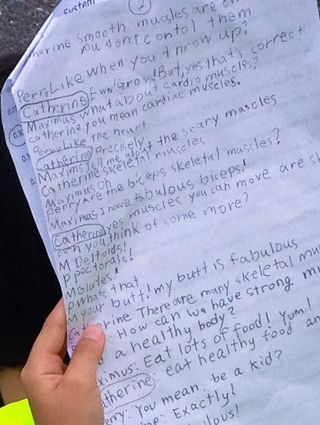 custom
Catherine smooth muscles are on
you don't contol them
Perry Like when you throw up?
Catherine Eww! Gross! But, yes that's correct
Maximus What about cardio muscles?
catherine you mean cardiac muscles.
Perry Like the heart
Catherine Precicely
Maximus Tell me about the scary muscles
Catherine skeletal muscles
Maximus oh
Perry Are the biceps skeletal muscles?
Maximus I have fabulous biceps!
Catherine Yes muscles you can move are sk
can you think of some more?
M Deltoids!
P Pectorals!
M Glutes!
P Whats that
M your butt! My butt is fabulous
Catherine There are many skeletal mu
: How can we have strong mu
a healthy body?
ximus: Eat lots of food! Yum!
atherine: eat healthy food an
erry: You mean, be a kid?
ne: Exactly!
bulous!